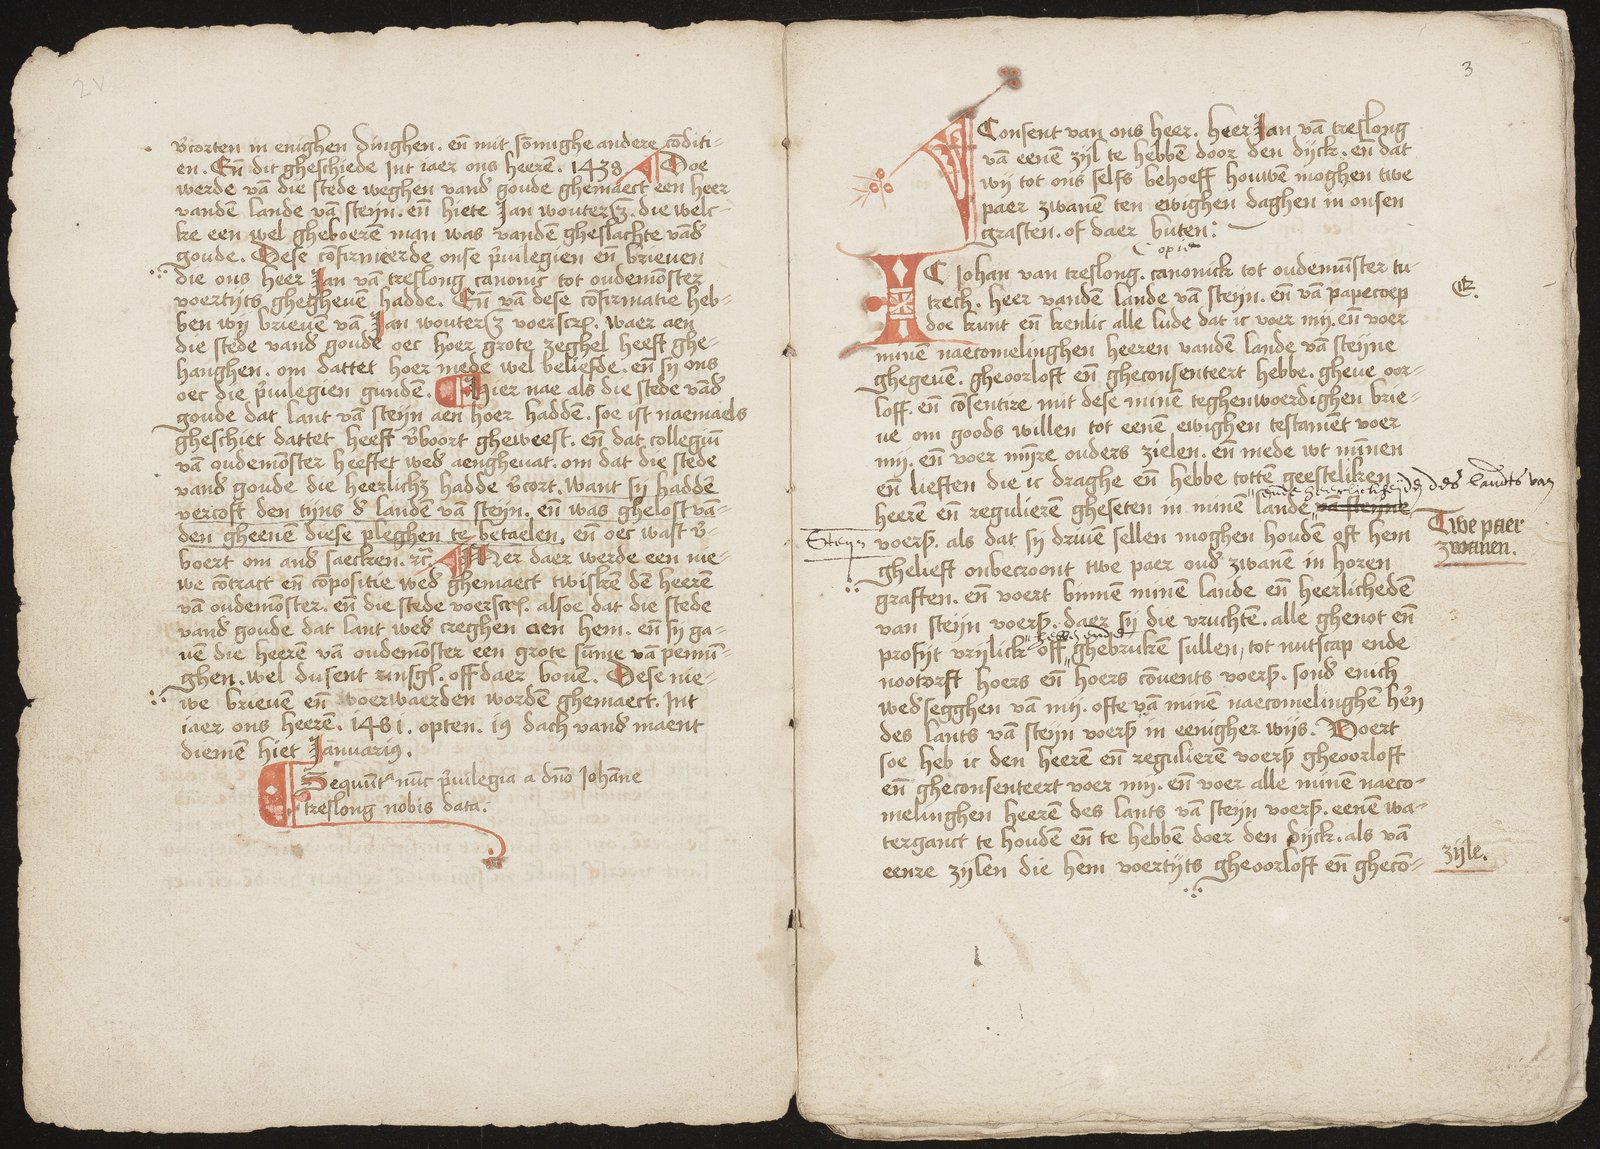 2v
v̄corten in enighen dinghen. en̄ mit sōmighe andere cōditi-
en. En̄ dit gheschiede Int iaer ons heerē. 1438 Doe
werde vā die stede weghen vand' goude ghemaect een heer
vandē lande vā steijn. en̄ hiete Jan wouterss. die welc-
ke een wel gheboerē man was vandē gheslachte vād'
goude. Dese cōfirmeerde onse p̄uilegien en̄ brieuen
die ons heer Jan vā treslong canonic tot oudemōster
voertijts ghegheuē hadde. En̄ vā dese cōfirmatie heb-
ben wij brieuē vā Jan wouterss voerscr. waer aen
die stede vand' goude oec hoer grote zeghel heeft ghe-
hanghen. om dattet hoer mede wel beliefde. en̄ sij ons
oec die p̄uilegien gundē. Hier nae als die stede vād'
goude dat lant vā steijn aen hoer haddē. soe ist naemaels
gheschiet dattet heeft v̄boort gheweest. en̄ dat collegiū
vā oudemōster heeftet wed' aenghevat. om dat die stede
vand' goude die heerlichz hadde v̄cort. want sij haddē
vercoft den tijns d' landē vā steijn. en̄ was ghelost vā-
den gheenē diese pleghen te betaelen, en̄ oec wast v̄-
boert om and' saecken. etc̄. Mer daer werde een nie-
we cōtract en̄ cōpositie wed' ghemaect twiskē dē heerē
vā oudemōster. en̄ die stede voerscr. alsoe dat die stede
vand' goude dat lant wed' creghen aen hem. en̄ sij ga-
uē die heerē vā oudemōster een grote sūme vā pennī-
ghen. wel dusent rinsgl. off daer bouē. Dese nie-
we brieuē en̄ voerwaerden wordē ghemaect. Int
iaer ons heerē. 1481. opten. 19 dach vand' maent
diemē hiet Januarij.
Sequūt' nūc p̄uilegia a dn̄o Johāne
treslong nobis data.
3
Consent van ons heer. heer Jan vā treslong
vā eenē zijl te hebbē door den dijck. en̄ dat
wij tot ons selfs behoeff houwē moghen twe
paer zwanē ten ewighen daghen in onsen
graften. of daer buten:
Copia
IC Johan van treslong. canonick tot oudemūster tu-
trech. heer vandē lande vā steijn. en̄ vā papecoep
doe kunt en̄ kenlic alle lude dat ic voer mij. en̄ voer
minē naecomelinghen heeren vandē lande vā steijne
ghegeuē. gheoorloft en̄ gheconsenteert hebbe. gheue oor-
loff. en̄ cōsentire mit dese minē teghenwoerdighen brie-
ue om goods willen tot eenē ewighen testamēt voer
mij. en̄ voer mijre ouders zielen. en̄ mede wt mīnen
en̄ lieften die ic draghe en̄ hebbe tottē geestelikē
ende heerlicheden des landts van
heerē en̄ regulierē gheseten in minē lande vā steijne
Steijn
voerſ. als dat sij driuē sellen moghen houdē oft hem
Twe paer
zwanen.
ghelieft onbecroont twe paer oud' zwanē in horen
graften. en̄ voert binnē minē lande en̄ heerlichedē
van steijn voerſ. daer sij die vruchtē. alle ghenot en̄
hebben ende
profijt vrijlick off ghebrukē sullen, tot nutscap ende
nootorft hoers en̄ hoers cōuents voerſ. sond' enich
wed'segghen vā mij. ofte vā minē naecomelinghē hē'n
des lants vā steijn voerſ in eenigher wijs. Voert
soe heb ic den heerē en̄ regulierē voerſ gheoorloft
en̄ gheconsenteert voer mij. en̄ voer alle minē naeco-
melinghen heerē des lants vā steijn voerſ. eenē wa-
terganct te houdē en̄ te hebbē doer den dijck. als vā
zijle.
eenre zijlen die hem voertijts gheoorloft en̄ ghecō-